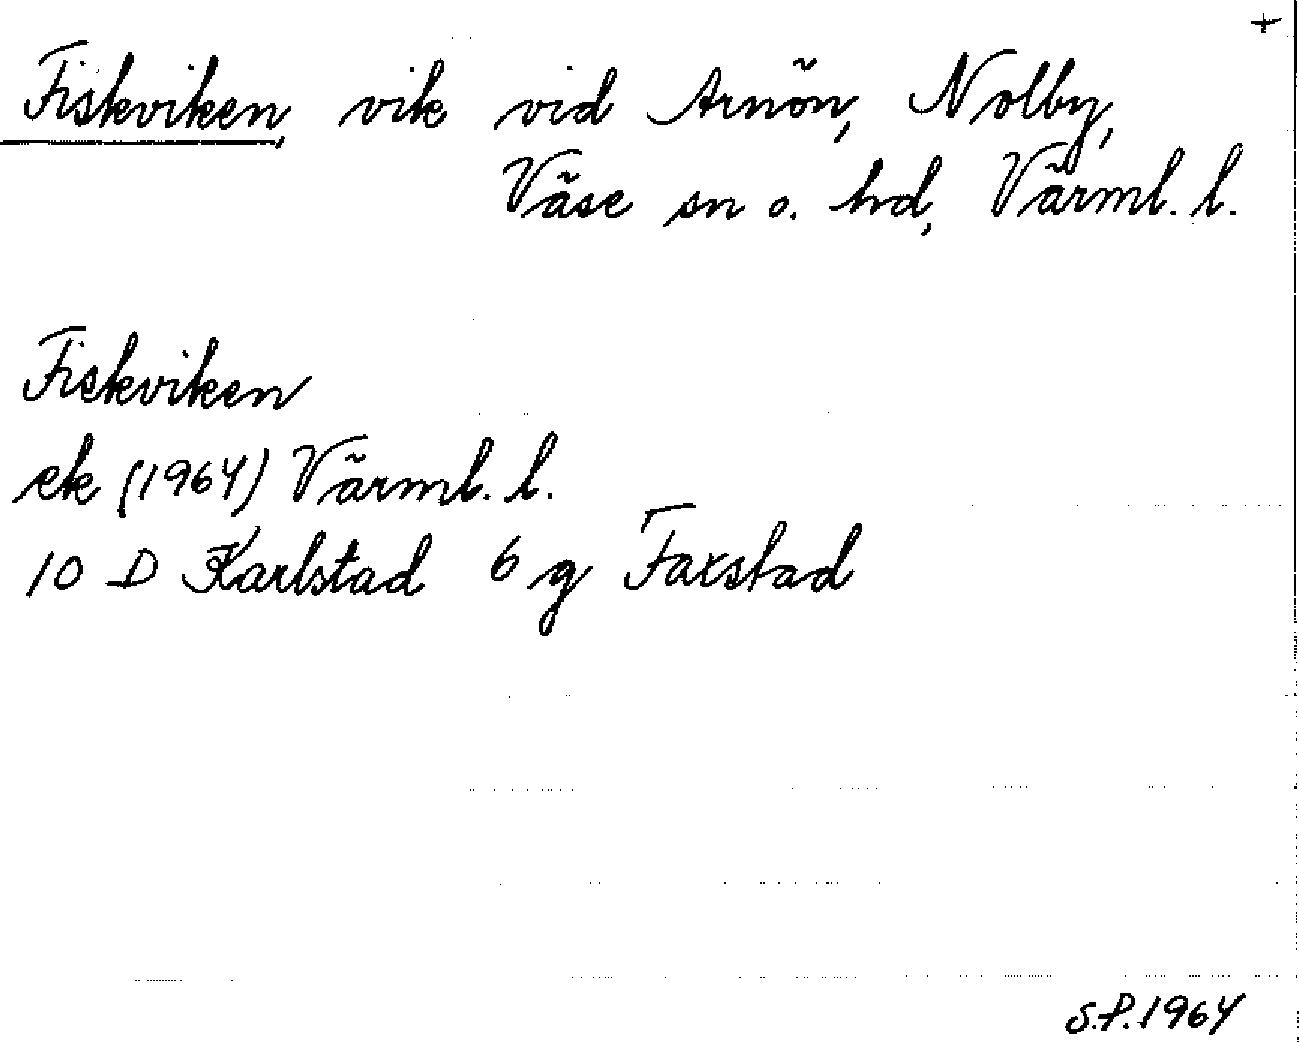 +
Fiskviken, vik vid Arnön, Nolby,
Väse sn o. hd, Värml. l.
Fiskviken
ek (1964) Värml. l.
10 D Karlstad 6 g Faxstad
S.P. 1964